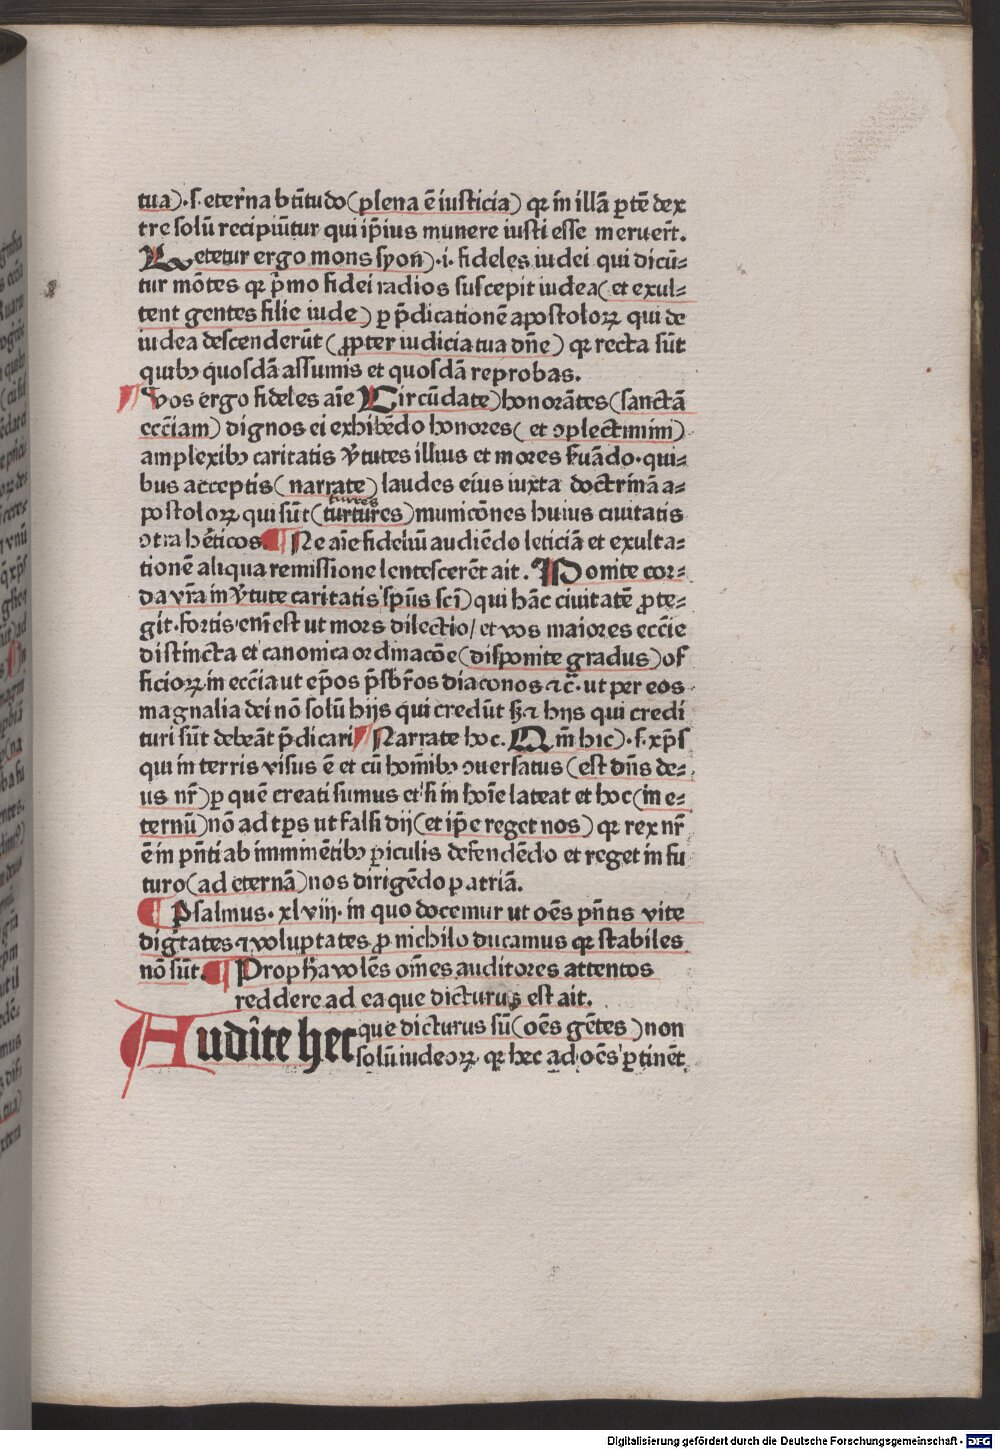 tua)·s·eterna btĩtudo(plena ẽ iusticia) qꝛ in illã ꝑtẽ dex
tre solũ recipiũtur qui ip̃ius munere iusti esse meruer̃t.
Letetur ergo mons syon)·i· fideles iudei qui dicũ⸗
tur mõtes qꝛ p̃mo fidei radios suscepit iudea(et exul⸗
tent gentes filie iude) ꝑ p̃dicationẽ apostoloꝝ qui de
iudea descenderũt (ꝓpter iudicia tua dñe) qꝛ recta sũt
quibꝰ quosdã assumis et quosdã reprobas.
Vos ergo fideles aĩe Circũdate)honorãtes(sanctã
eccĩam) dignos ei exhibẽdo honores( et ꝯplectimini)
amplexibꝰ caritatis v̾tutes illius et mores ẜuãdo·qui⸗
bus acceptis(narrate)laudes eius iuxta doctrinã a⸗
turres
postoloꝝ qui sũt(turtures)municõnes huius ciuitatis
ꝯtra hẽticos. Ne aĩe fideliũ audiẽdo leticiã et exulta⸗
tionẽ aliqua remissione lentescerẽt ait. Ponite cor⸗
da vr̃a in v̾tute caritatis sp̃us sc̃i)qui hãc ciuitatẽ ꝓte⸗
git·fortis·enĩ est ut mors dilectio/et vos maiores ecc̃ie
distincta et canonica ordinacõe(disponite gradus)of
ficioꝝ·in ecc̃ia ut ep̃os p̃sbr̃os diaconos ⁊c̃·ut per eos
magnalia dei nõ solũ hijs qui credũt sꝫ ⁊ hijs qui credi
turi sũt debeãt p̃dicari Narrate hoc. Qm̃ hic)·s·xp̃s
qui in terris visus ẽ et cũ homĩbꝰ ꝯuersatus(est dñs de⸗
us nr̃)ꝑ quẽ creati sumus et si in hoĩe lateat et hoc(in e⸗
ternũ)nõ ad tp̃s ut falsi dij(et ip̃e reget nos) qꝛ rex nr̃
ẽ in pñti ab imminẽtibꝰ ꝑiculis defendẽdo et reget in fu
turo(ad eternã)nos dirigẽdo patriã.
Psalmus·xlviij·in quo docemur ut oẽs pñtis vite
dig̃tates ⁊ voluptates ꝓ nichilo ducamus qꝛ stabiles
nõ sũt. Proph̃a volẽs om̃es auditores attentos
reddere ad ea que dicturus est ait.
Audĩte hec que dicturus sũ(oẽs gẽtes)non
solũ iudeoꝝ·qꝛ hec ad oẽs ꝑtinẽt
Digitalisierung gefördert durch die Deutsche Forschungsgemeinschaft - DFG